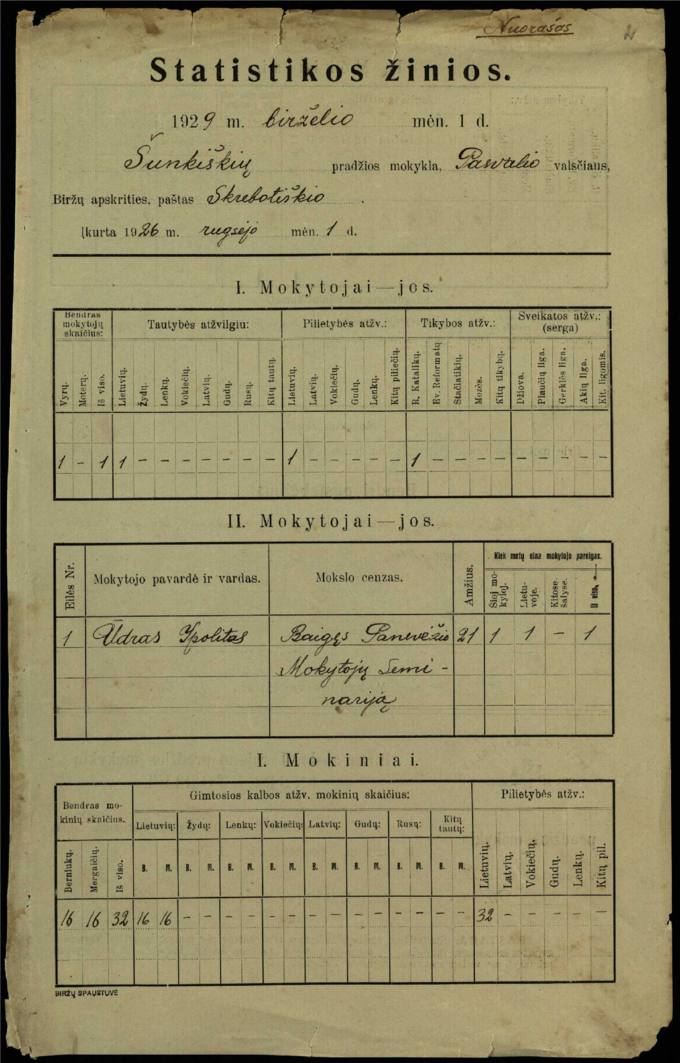 Nuorašas
2
Statistikos žinios.
1929 m. birželio mėn. 1 d.
Šunkiškių pradžios mokykla, Pasvalio valsčiaus,
Biržų apskrities, paštas Skrebotiškio .
Įkurta 1926 m. rugsėjo mėn. 1 d.
I. Mokytojai—jos.
Bendras mokytojų skaičius: Tautybės atžvilgiu: Pilietybės atžv.: Tikybos atžv.: Sveikatos atžv.: (serga)
Vyrų. Moterų. Iš viso. Lietuvių. Žydų. Lenkų. Vokiečių. Latvių. Gudų. Rusų. Kitų tautų. Lietuvių. Latvių. Vokiečių. Gudų. Lenkų. Kitų piliečių. R. Katalikų. Ev. Reformatų Stačiatikių. Mozės. Kitų tikybų. Džiova. Plaučių liga. Gerklės liga. Akių liga. Kit. ligomis.
1 – 1 1 – – – – – – – 1 – – – – – 1 – – – – – – – – –
II. Mokytojai—jos.
Eilės Nr. Mokytojo pavardė ir vardas. Mokslo cenzas. Amžius. Kiek metų eina mokytojo pareigas.
Šioj mokykloj. Lietuvoje. Kitose šalyse. Iš viso.
1 Ūdras Ypolitas Baigęs Panevėžio 21 1 1 – 1
Mokytojų Semi-
nariją
I. Mokiniai.
Bendras mokinių skaičius. Gimtosios kalbos atžv. mokinių skaičius: Pilietybės atžv.:
Lietuvių: Žydų: Lenkų: Vokiečių: Latvių: Gudų: Rusų: Kitų tautų:
Berniukų. Mergaičių. Iš viso. B. M. B. M. B. M. B. M. B. M. B. M. B. M. B. M. Lietuvių. Latvių. Vokiečių. Gudų. Lenkų. Kitų pil.
16 16 32 16 16 – – – – – – – – – – – – – – 32 – – – – –
BIRŽŲ SPAUSTUVĖ